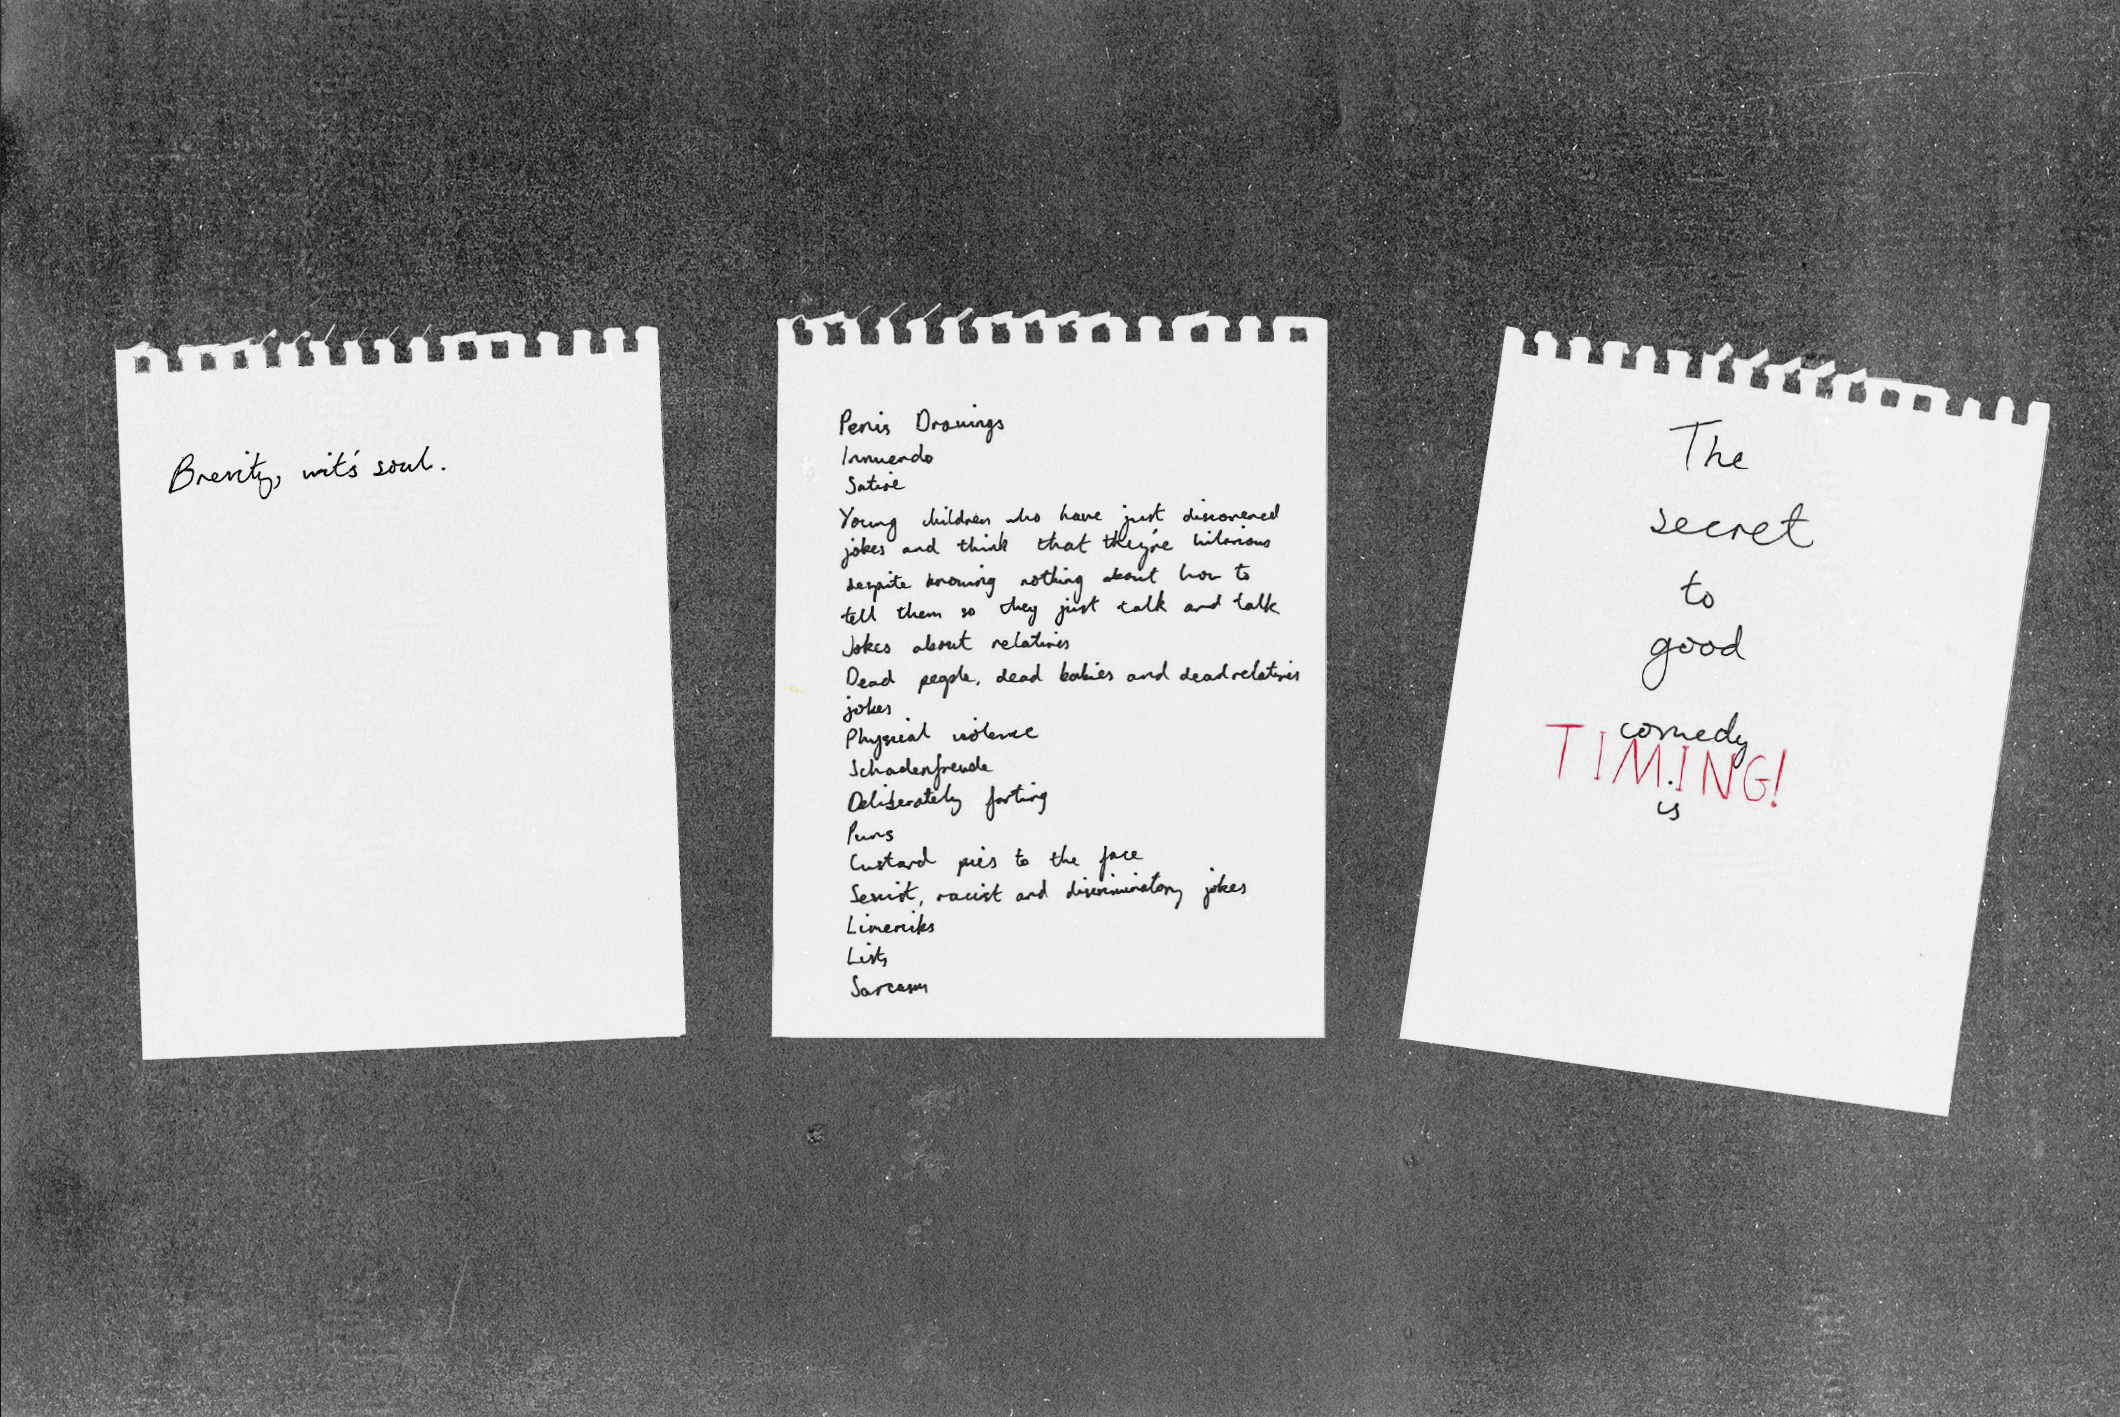 Brevity, wit's soul.
Penis Drawings
Innuendo
Satire
Young children who have just discovered
jokes and think that they're hilarious
despite knowing nothing about how to
tell them so they just talk and talk
Jokes about relatives
Dead people, dead babies and dead relatives
jokes
Physical violence
Schadenfreude
Deliberately farting
Puns
Custard pies to the face
Sexist, racist and discriminatory jokes
Limericks
Lists
Sarcasm
The
secret
to
good
comedy
TIMING!
is